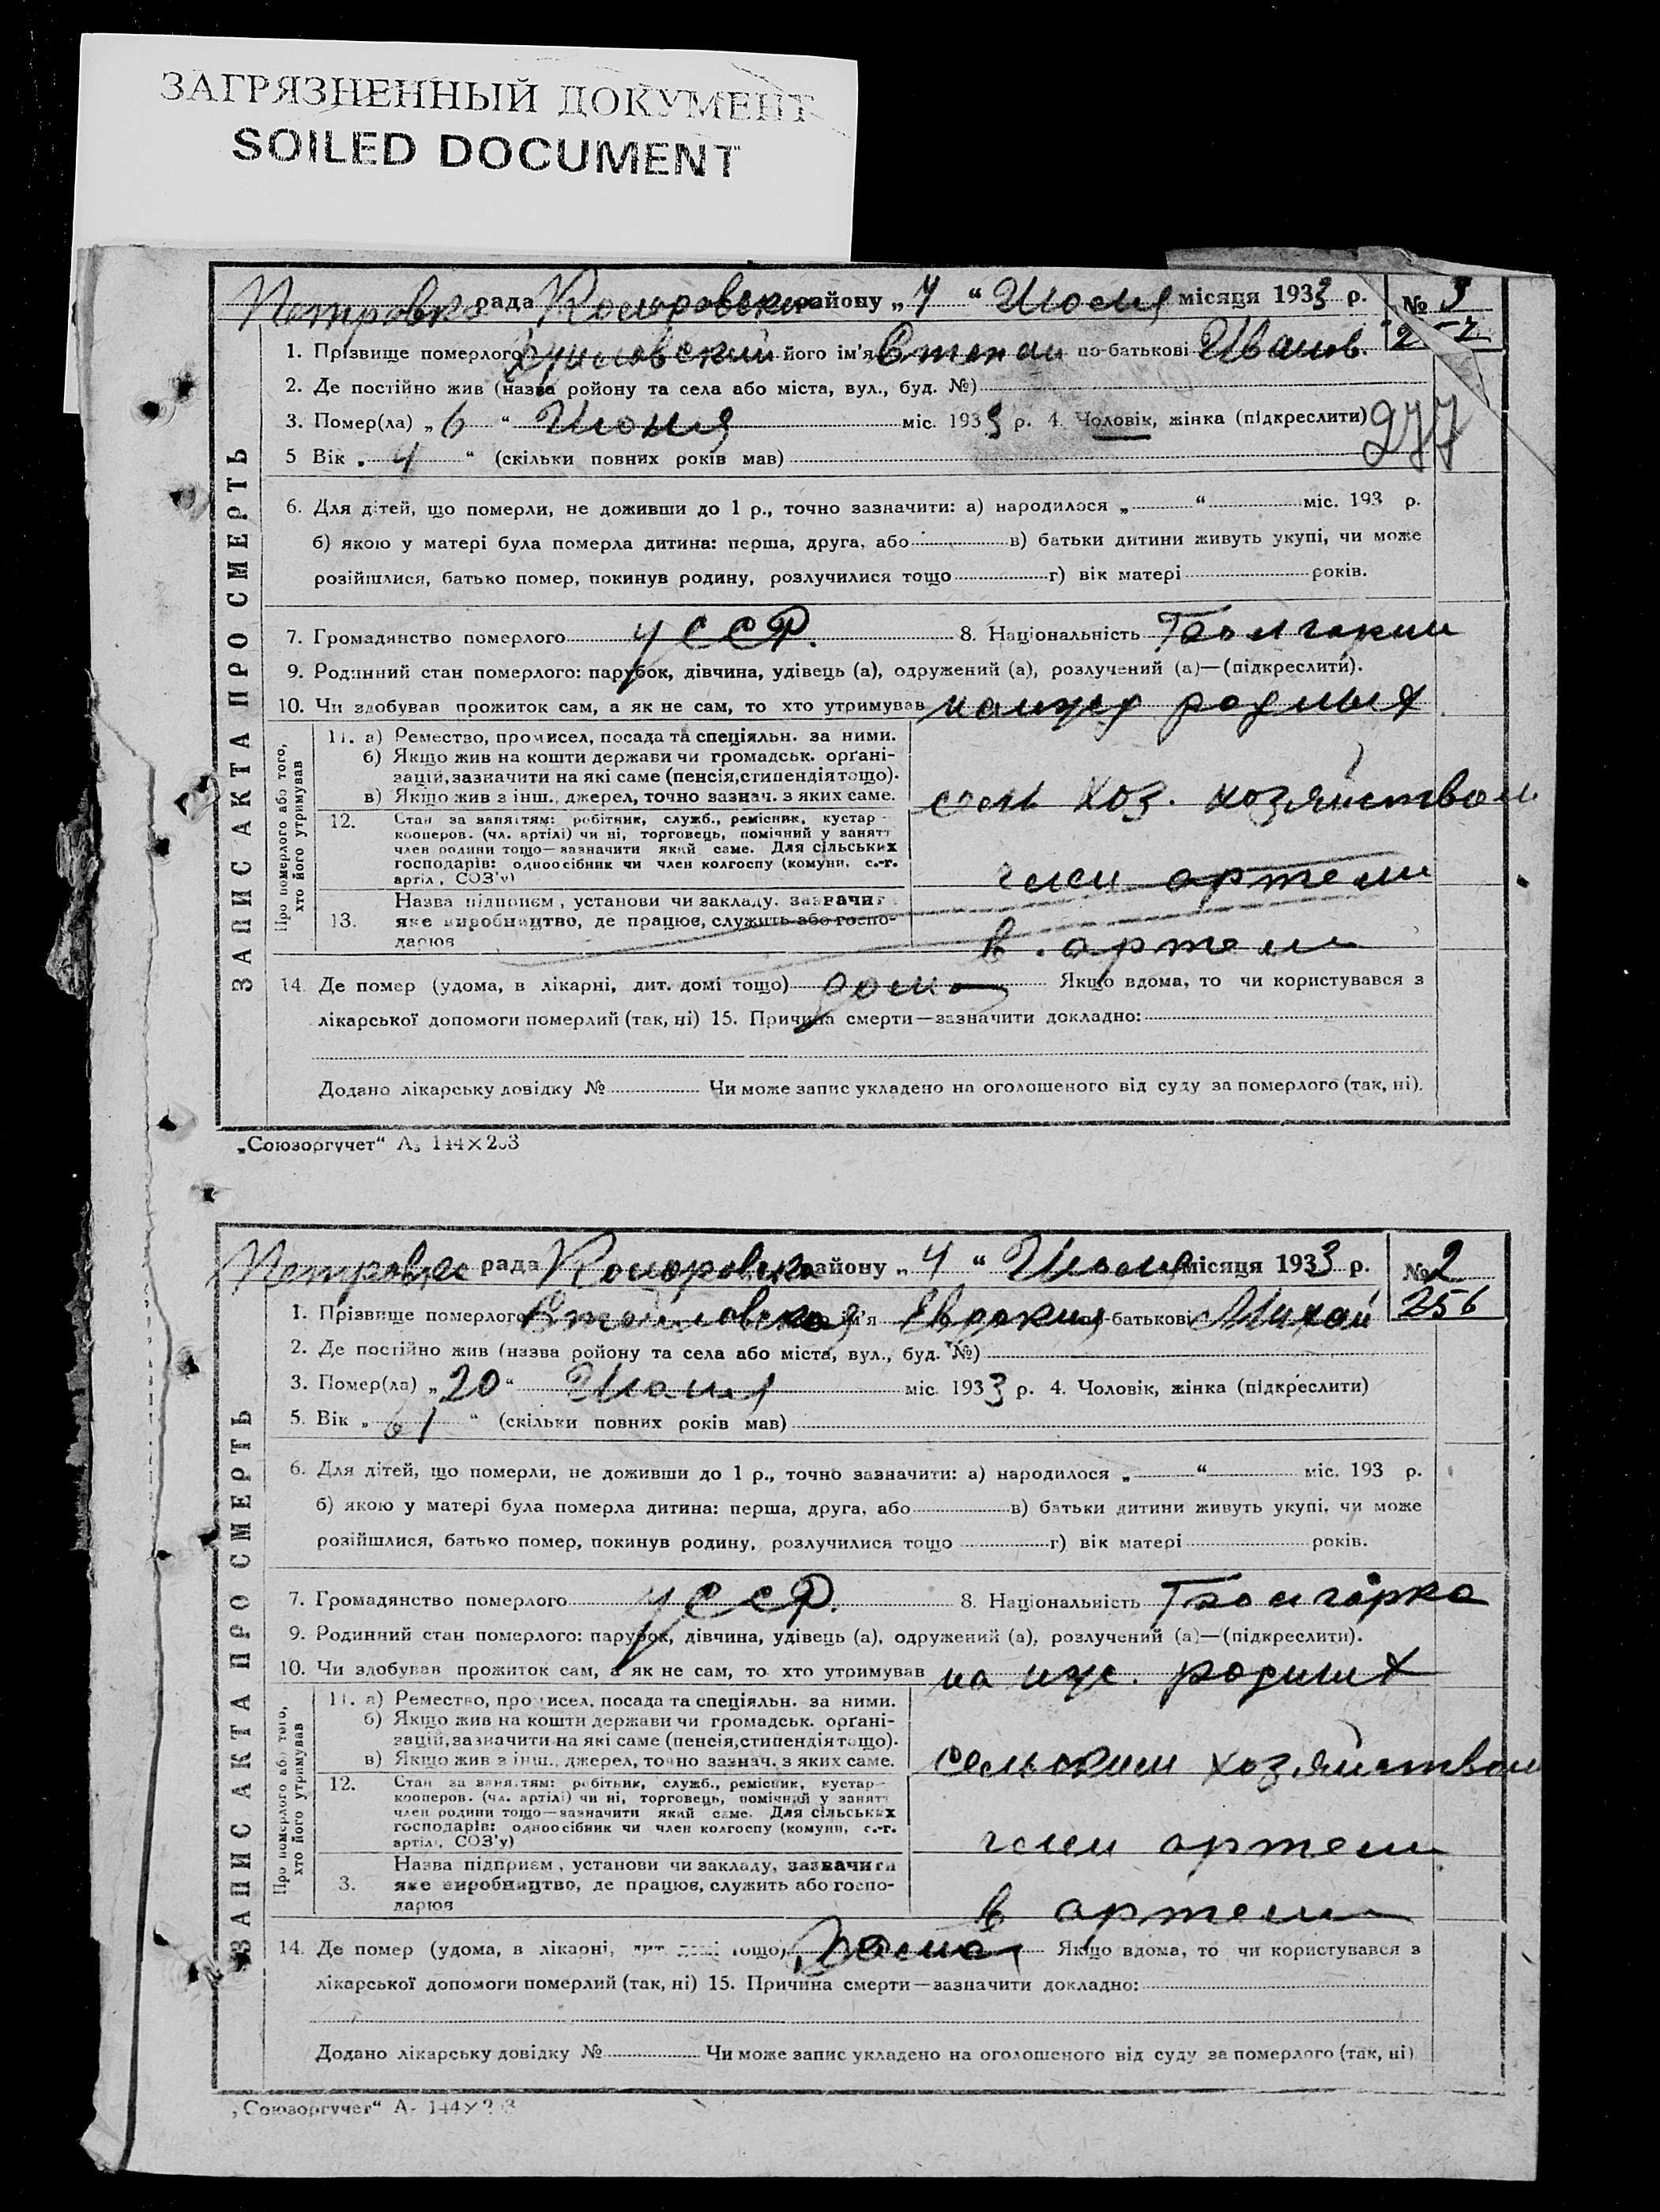 ЗАГРЯЗНЕННЫЙ ДОКУМЕНТ
SOILED DOCUMENT
Петровка рада району „ “ місяця 1933 р. № 3
1. Прізвище померлого його ім'я Степан по-батькові Иванов.
2. Де постійно жив (назва ройону та села або міста, вул., буд. №)
3. Помер(ла) „6 “ Июня міс. 1933 р. 4. Чоловік, жінка (підкреслити) 277
5 Вік „ 4 “ (скільки повних років мав)
6. Для дітей, що померли, не доживши до 1 р., точно зазначити: а) народилося „ “ міс. 193 р.
б) якою у матері була померла дитина: перша, друга, або в) батьки дитини живуть укупі, чи може
розійшлися, батько помер, покинув родину, розлучилися тощо г) вік матері років.
7. Громадянство померлого УССР. 8. Національність
9. Родинний стан померлого: парубок, дівчина, удівець (а), одружений (а), розлучений (а)—(підкреслити).
10. Чи здобував прожиток сам, а як не сам, то хто утримував родных
ЗАПИС АКТА ПРО СМЕРТЬ
Про померлого або того, хто його утримував
11. а) Ремество, промисел, посада та спеціяльн. за ними.
б) Якщо жив на кошти держави чи громадськ. орґані-
зацій, зазначити на які саме (пенсія, стипендія тощо).
в) Якщо жив з інш., джерел, точно зазнач. з яких саме.
хоз. хозяйством
12. Стан за заняттям: робітник, служб., ремісник, кустар-
кооперов. (чл. артілі) чи ні, торговець, помічний у занятт
член родини тощо—зазначити який саме. Для сільських
господарів: одноосібник чи член колгоспу (комуни, с.-г.
артіл, СОЗ'у)
член артели
Назва підприєм, установи чи закладу, зазначит
13. яке виробництво, де працює, служить або госпо-
дарює
в артели
14. Де помер (удома, в лікарні, дит. домі тощо) дома Якщо вдома, то чи користувався з
лікарської допомоги померлий (так, ні) 15. Причина смерти—зазначити докладно:
Додано лікарську довідку № Чи може запис укладено на оголошеного від суду за померлого (так, ні).
„Союзоргучет“
Петровка рада району „ “ місяця 1933 р. № 2
256
1. Прізвище померлого ім'я Евдокия батькові Михай
2. Де постійно жив (назва ройону та села або міста, вул., буд. №)
3. Помер(ла) „20“ міс. 1933 р. 4. Чоловік, жінка (підкреслити)
5. Вік „ 61 “ (скільки повних років мав)
6. Для дітей, що померли, не доживши до 1 р., точно зазначити: а) народилося „ “ міс. 193 р.
б) якою у матері була померла дитина: перша, друга, або в) батьки дитини живуть укупі, чи може
розійшлися, батько помер, покинув родину, розлучилися тощо г) вік матері років.
7. Громадянство померлого УССР. 8. Національність Болгарка
9. Родинний стан померлого: парубок, дівчина, удівець (а), одружений (а), розлучений (а)—(підкреслити).
10. Чи здобував прожиток сам, а як не сам, то хто утримував на иже. родных
ЗАПИС АКТА ПРО СМЕРТЬ
Про померлого або того, хто його утримував
11. а) Ремество, промисел, посада та спеціяльн. за ними.
б) Якщо жив на кошти держави чи громадськ. орґані-
зацій, зазначити на які саме (пенсія, стипендія тощо).
в) Якщо жив з інш., джерел, точно зазнач. з яких саме.
сельским хозяйством
12. Стан за заняттям: робітник, служб., ремісник, кустар-
кооперов. (чл. артілі) чи ні, торговець, помічний у занятт
член родини тощо—зазначити який саме. Для сільських
господарів: одноосібник чи член колгоспу (комуни, с.-г.
артіл, СОЗ'у)
член артели
Назва підприєм, установи чи закладу, зазначити
3. яке виробництво, де працює, служить або госпо-
дарює
в артели
14. Де помер (удома, в лікарні, тощо) Дома Якщо вдома, то чи користувався з
лікарської допомоги померлий (так, ні) 15. Причина смерти—зазначити докладно:
Додано лікарську довідку № Чи може запис укладено на оголошеного від суду за померлого (так, ні)
„Союзоргучет“